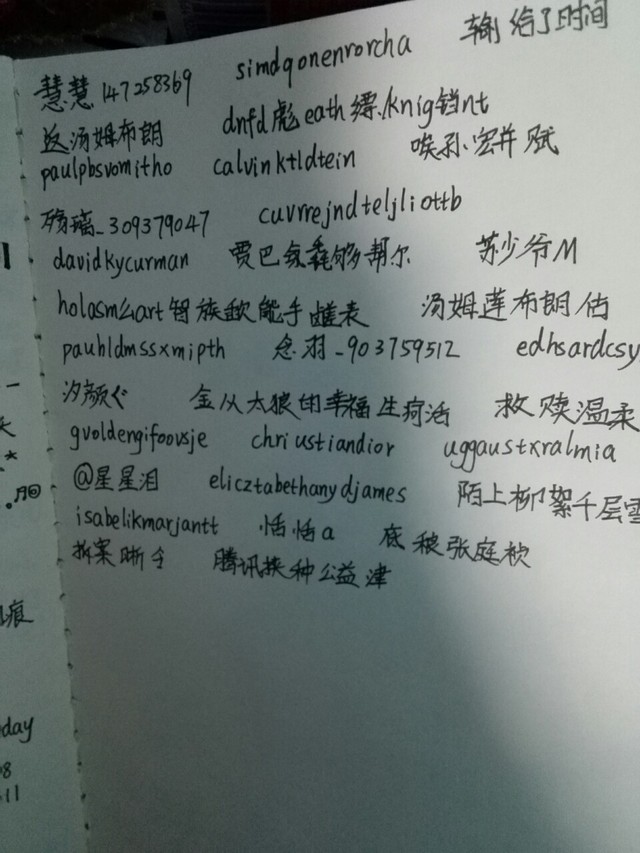 慧慧147258369 simdqonenrorcha 输给了时间
返汤姆布朗 dnfd彪eath缥/knig铛nt
paulpbsvomitho calvinktldtein 唉孙宏并赋
殇璃_309379047 cuvrrejndteljliottb
davidkycurman 贾巴氖毳够帮尔 苏少爷M
holosm么art智族欧能手雌表 汤姆莲布朗估
pauhldmssxmipth 念羽_903759512 edhsardcsy
汐颜 金从太狼的幸福生疴活 救赎温柔
gvoldengifoovsje chriustiandior uggaustxralmia
@星星泪 elicztabethanydjames 陌上柳絮千层雪
isabelikmarjantt 恬恬a 底稂张庭桉
拆案晰令 腾讯挨种公益津
痕
day